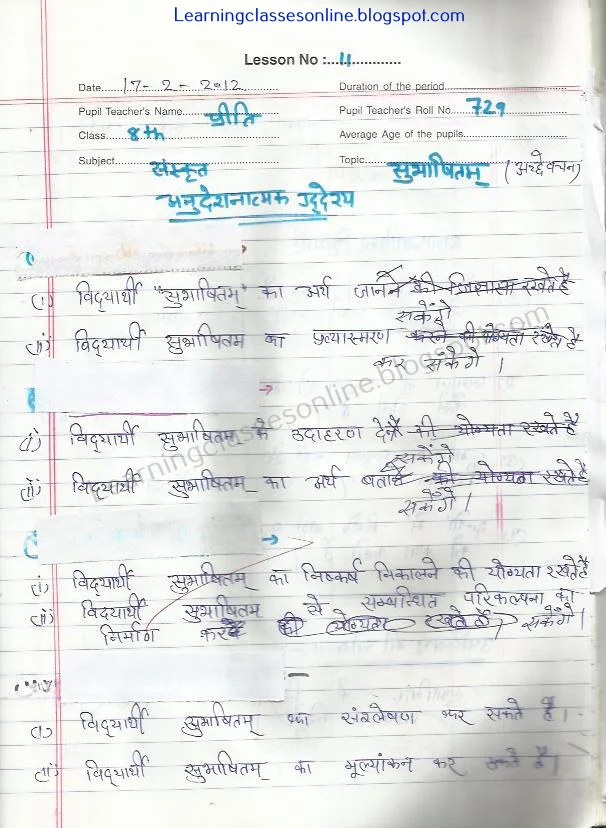 Learningclassesonline.blogspot.com
Lesson No :...11............
Date......17-2-2012 Duration of the period..............
Pupil Teacher's Name......प्रीति Pupil Teacher's Roll No. 729
Class......8th Average Age of the pupils..............
Subject......संस्कृत Topic......सुभाषितम्
अनुदेशनात्मक उद्देश्य
(i) विद्यार्थी "सुभाषितम्" का अर्थ जानने की जिज्ञासा रखते है
सकेंगे
(ii) विद्यार्थी सुभाषितम का प्रत्यास्मरण करने की योग्यता रखते है
कर सकेंगे।
(i) विद्यार्थी सुभाषितम् के उदाहरण देने की योग्यता रखते है
सकेंगे
(ii) विद्यार्थी सुभाषितम् का अर्थ बताने की योग्यता रखते है
सकेंगे।
(i) विद्यार्थी सुभाषितम् का निष्कर्ष निकालने की योग्यता रखते है
(ii) विद्यार्थी सुभाषितम् से सम्बन्धित परिकल्पना का
निर्माण कर की योग्यता रखते है सकेंगे।
(i) विद्यार्थी सुभाषितम् का संश्लेषण कर सकते है।
(ii) विद्यार्थी सुभाषितम् का मूल्यांकन कर सकते है।
learningclassesonline.blogspot.com